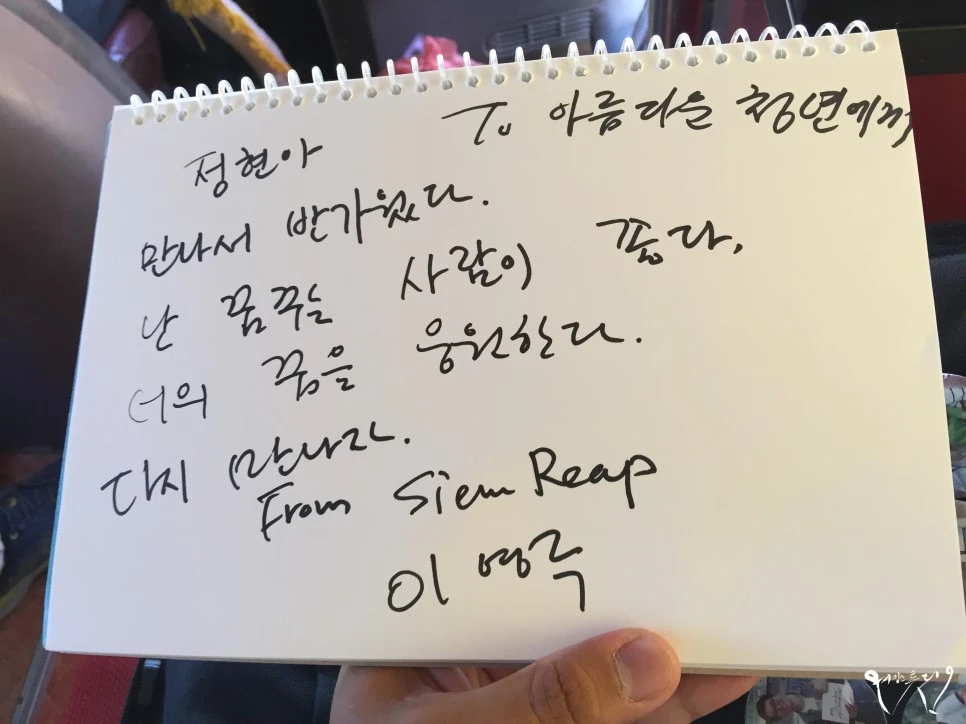 To 아름다운 청년에게
정현아
만나서 반가웠다.
난 꿈꾸는 사람이 좋다,
너의 꿈을 응원한다.
다시 만나자.
From Siem Reap
이